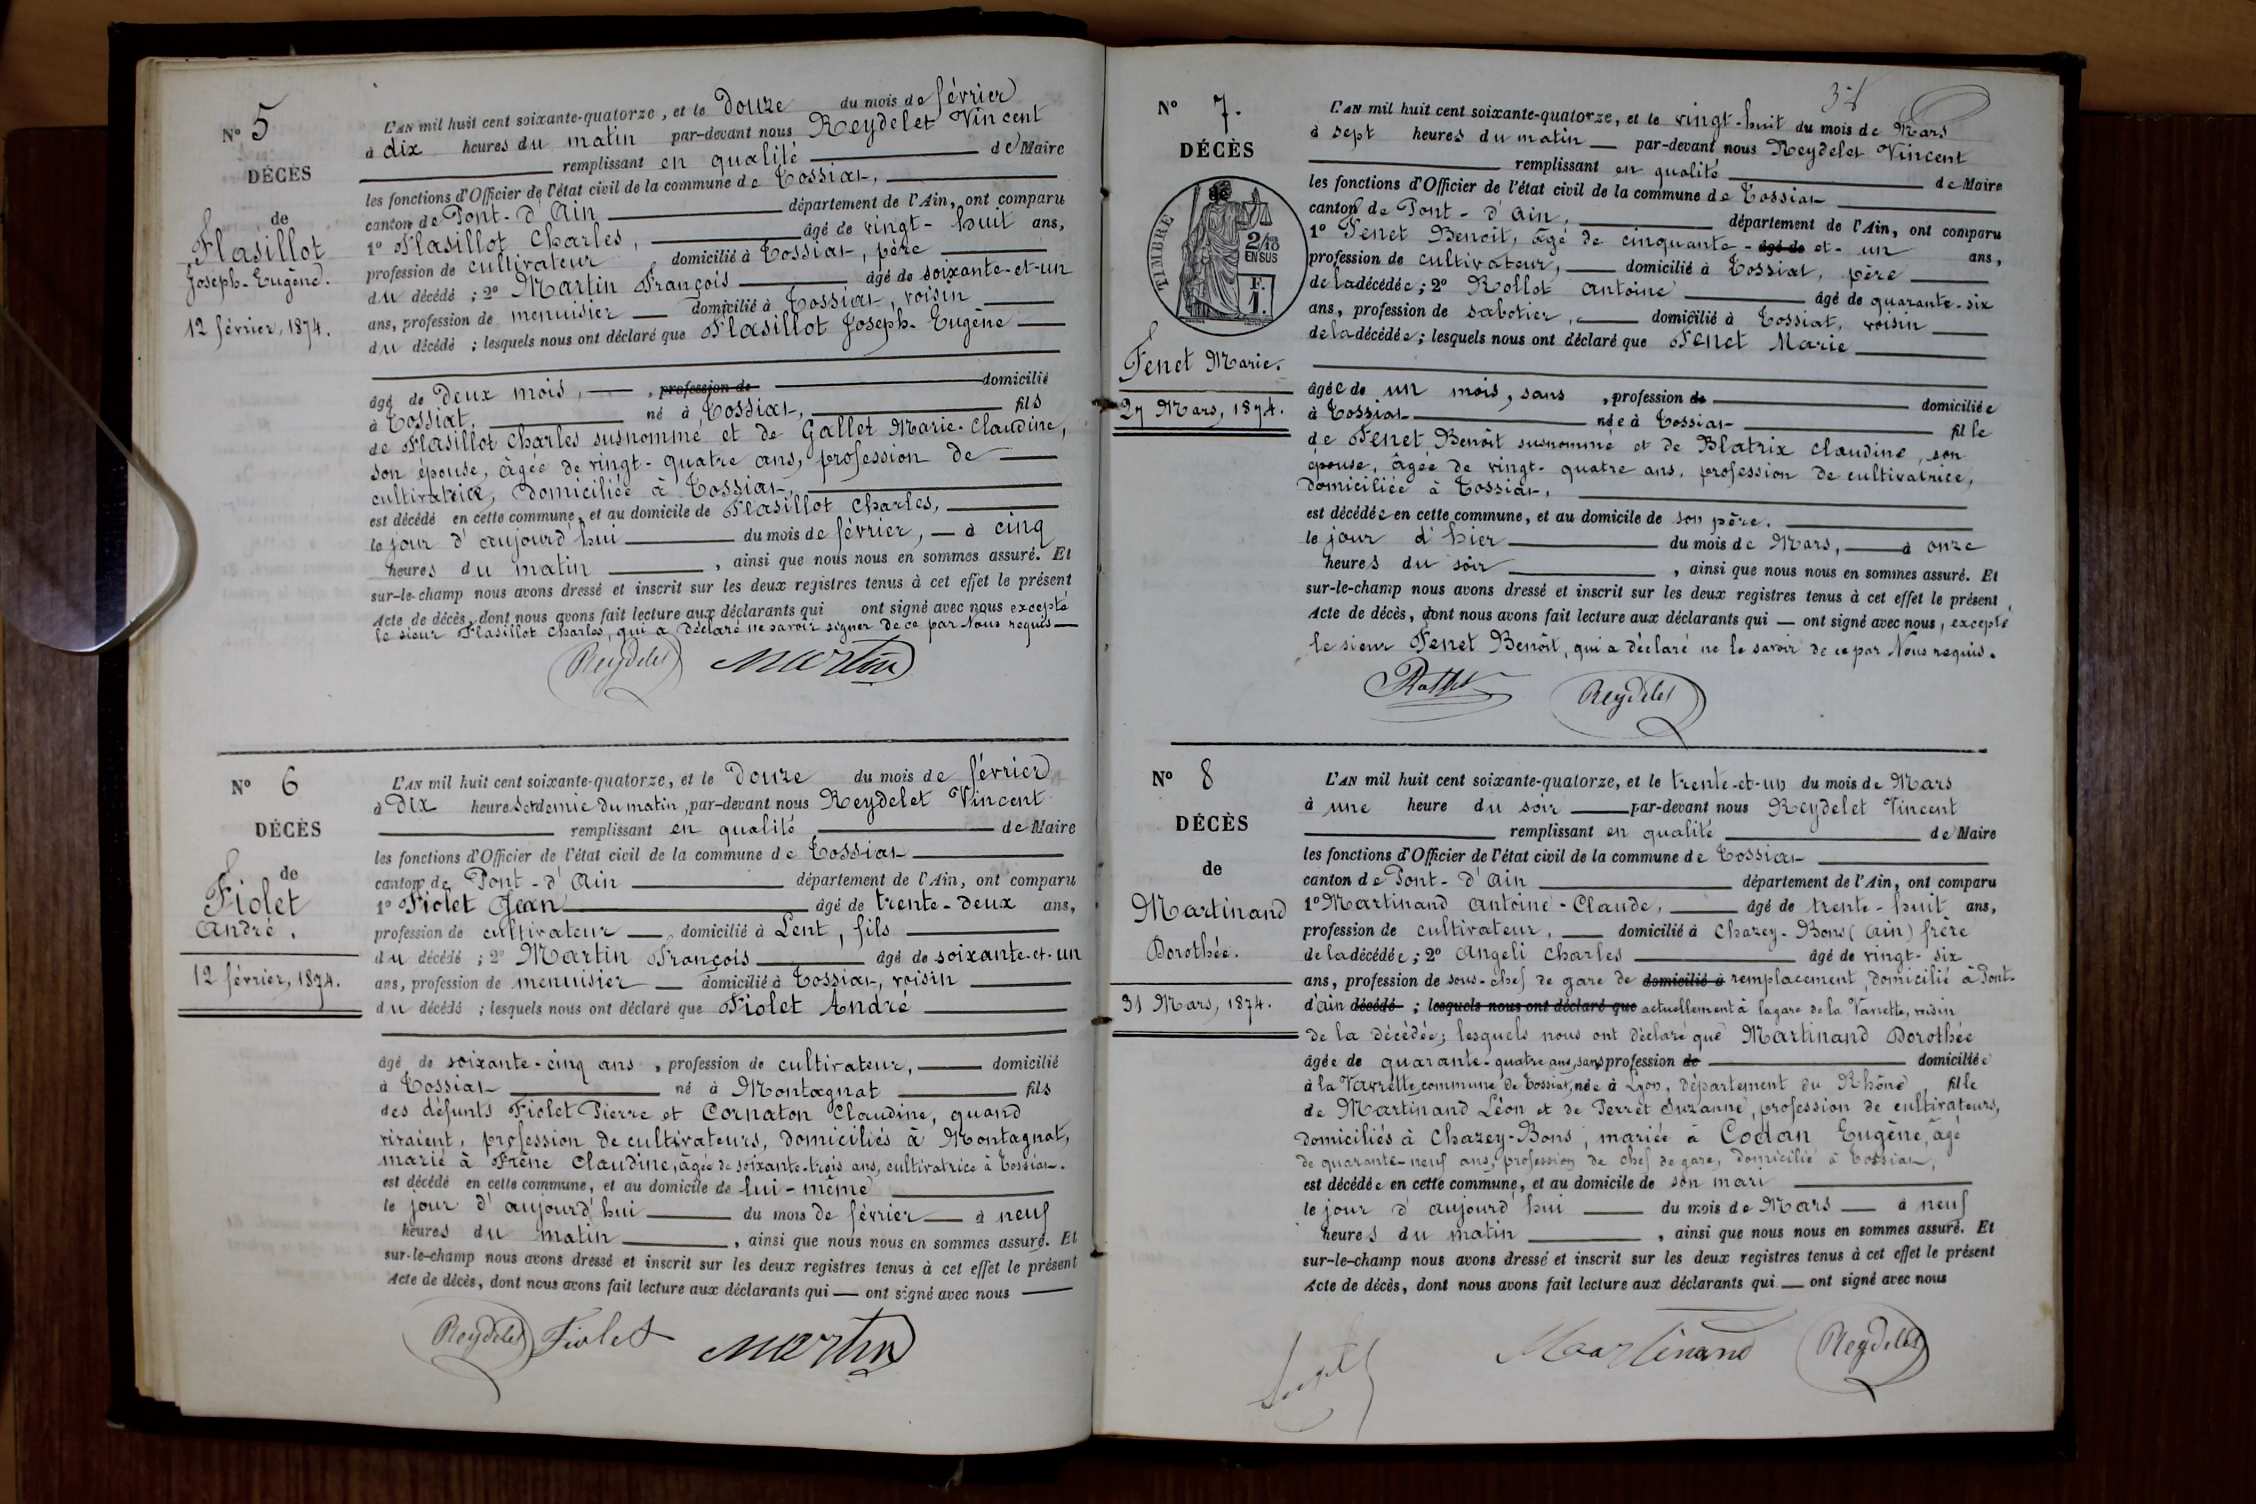 N° 5
DÉCÈS
de
Flasillot
Joseph-Eugène.
12 février, 1874.
L'AN mil huit cent soixante-quatorze, et le Douze du mois de février
à dix heures du matin par-devant nous Reydelet Vincent
remplissant en qualité de Maire
les fonctions d'Officier de l'état civil de la commune de Tossiat,
canton de Pont-d'Ain département de l'Ain, ont comparu
1° Flasillot Charles, âgé de vingt-huit ans,
profession de cultivateur domicilié à Tossiat, père
du décédé ; 2° Martin François âgé de soixante-et-un
ans, profession de menuisier domicilié à Tossiat, voisin
du décédé ; lesquels nous ont déclaré que Flasillot Joseph-Eugène
âgé de Deux mois, , profession de domicilié
à Tossiat, né à Tossiat, fils
de Flasillot Charles susnommé et de Gallet Marie-Claudine,
son épouse, âgée de vingt-quatre ans, profession de
cultivatrice, Domiciliée à Tossiat,
est décédé en cette commune, et au domicile de Flasillot Charles,
le jour d'aujourd'hui du mois de février, à cinq
heures du matin , ainsi que nous nous en sommes assuré. Et
sur-le-champ nous avons dressé et inscrit sur les deux registres tenus à cet effet le présent
Acte de décès, dont nous avons fait lecture aux déclarants qui ont signé avec nous excepté
le sieur Flasillot Charles, qui a déclaré ne savoir signer de ce par Nous requis
Reydelet Martin
N° 6
DÉCÈS
de
Fiolet
André.
12 février, 1874.
L'AN mil huit cent soixante-quatorze, et le Douze du mois de février
à Dix heures et demie du matin, par-devant nous Reydelet Vincent
remplissant en qualité de Maire
les fonctions d'Officier de l'état civil de la commune de Tossiat
canton de Pont-d'Ain département de l'Ain, ont comparu
1° Fiolet Jean âgé de trente-deux ans,
profession de cultivateur domicilié à Lent, fils
du décédé ; 2° Martin François âgé de soixante-et-un
ans, profession de menuisier domicilié à Tossiat, voisin
du décédé ; lesquels nous ont déclaré que Fiolet André
âgé de soixante-cinq ans, profession de cultivateur, domicilié
à Tossiat né à Montagnat fils
des défunts Fiolet Pierre et Cornaton Claudine, quand
vivaient, profession de cultivateurs, domiciliés à Montagnat,
marié à Frêne Claudine, âgée de soixante-trois ans, cultivatrice à Tossiat.
est décédé en cette commune, et au domicile de lui-même
le jour d'aujourd'hui du mois de février à neuf
heures du matin , ainsi que nous nous en sommes assuré. Et
sur-le-champ nous avons dressé et inscrit sur les deux registres tenus à cet effet le présent
Acte de décès, dont nous avons fait lecture aux déclarants qui ont signé avec nous
Reydelet Fiolet Martin
N° 7.
DÉCÈS
TIMBRE
2/10
EN SUS
F.
1.
Fenet Marie.
27 Mars, 1874.
L'AN mil huit cent soixante-quatorze, et le vingt-huit du mois de Mars
à sept heures du matin par-devant nous Reydelet Vincent
remplissant en qualité de Maire
les fonctions d'Officier de l'état civil de la commune de Tossiat
canton de Pont-d'Ain, département de l'Ain, ont comparu
1° Fenet Benoît, âgé de cinquante-âgé de et-un ans,
profession de cultivateur, domicilié à Tossiat, père
de la décédée ; 2° Rollot Antoine âgé de quarante-six
ans, profession de sabotier, domicilié à Tossiat, voisin
de la décédée ; lesquels nous ont déclaré que Fenet Marie
âgée de un mois, sans , profession de domiciliée
à Tossiat née à Tossiat fille
de Fenet Benoît susnommé et de Blatrix Claudine, son
épouse, âgée de vingt-quatre ans, profession de cultivatrice,
Domiciliée à Tossiat,
est décédée en cette commune, et au domicile de son père.
le jour d'hier du mois de Mars, à onze
heures du soir , ainsi que nous nous en sommes assuré. Et
sur-le-champ nous avons dressé et inscrit sur les deux registres tenus à cet effet le présent
Acte de décès, dont nous avons fait lecture aux déclarants qui ont signé avec nous, excepté
le sieur Fenet Benoît, qui a déclaré ne le savoir de ce par Nous requis.
Reydelet
N° 8
DÉCÈS
de
Martinand
Dorothée.
31 Mars, 1874.
L'AN mil huit cent soixante-quatorze, et le trente-et-un du mois de Mars
à une heure du soir par-devant nous Reydelet Vincent
remplissant en qualité de Maire
les fonctions d'Officier de l'état civil de la commune de Tossiat
canton de Pont-d'Ain département de l'Ain, ont comparu
1° Martinand Antoine-Claude, âgé de trente-huit ans,
profession de cultivateur, domicilié à Chazey-Bons (Ain) frère
de la décédée ; 2° Angeli Charles âgé de vingt-six
ans, profession de sous-chef de gare de domicilié à remplacement, domicilié à Pont-
d'ain décédé ; lesquels nous ont déclaré que actuellement à la gare de la Vavrette, voisin
de la décédée; lesquels nous ont déclaré que Martinand Dorothée
âgée de quarante-quatre ans, sans profession de domiciliée
à la Vavrette, commune de Tossiat, née à Lyon, département du Rhône, fille
de Martinand Léon et de Perret Suzanne, profession de cultivateurs,
domiciliés à Chazey-Bons, mariée à Codan Eugène, âgé
de quarante-neuf ans, profession de chef de gare, domicilié à Tossiat,
est décédée en cette commune, et au domicile de son mari
le jour d'aujourd'hui du mois de Mars à neuf
heures du matin , ainsi que nous nous en sommes assuré. Et
sur-le-champ nous avons dressé et inscrit sur les deux registres tenus à cet effet le présent
Acte de décès, dont nous avons fait lecture aux déclarants qui ont signé avec nous
Martinand Reydelet